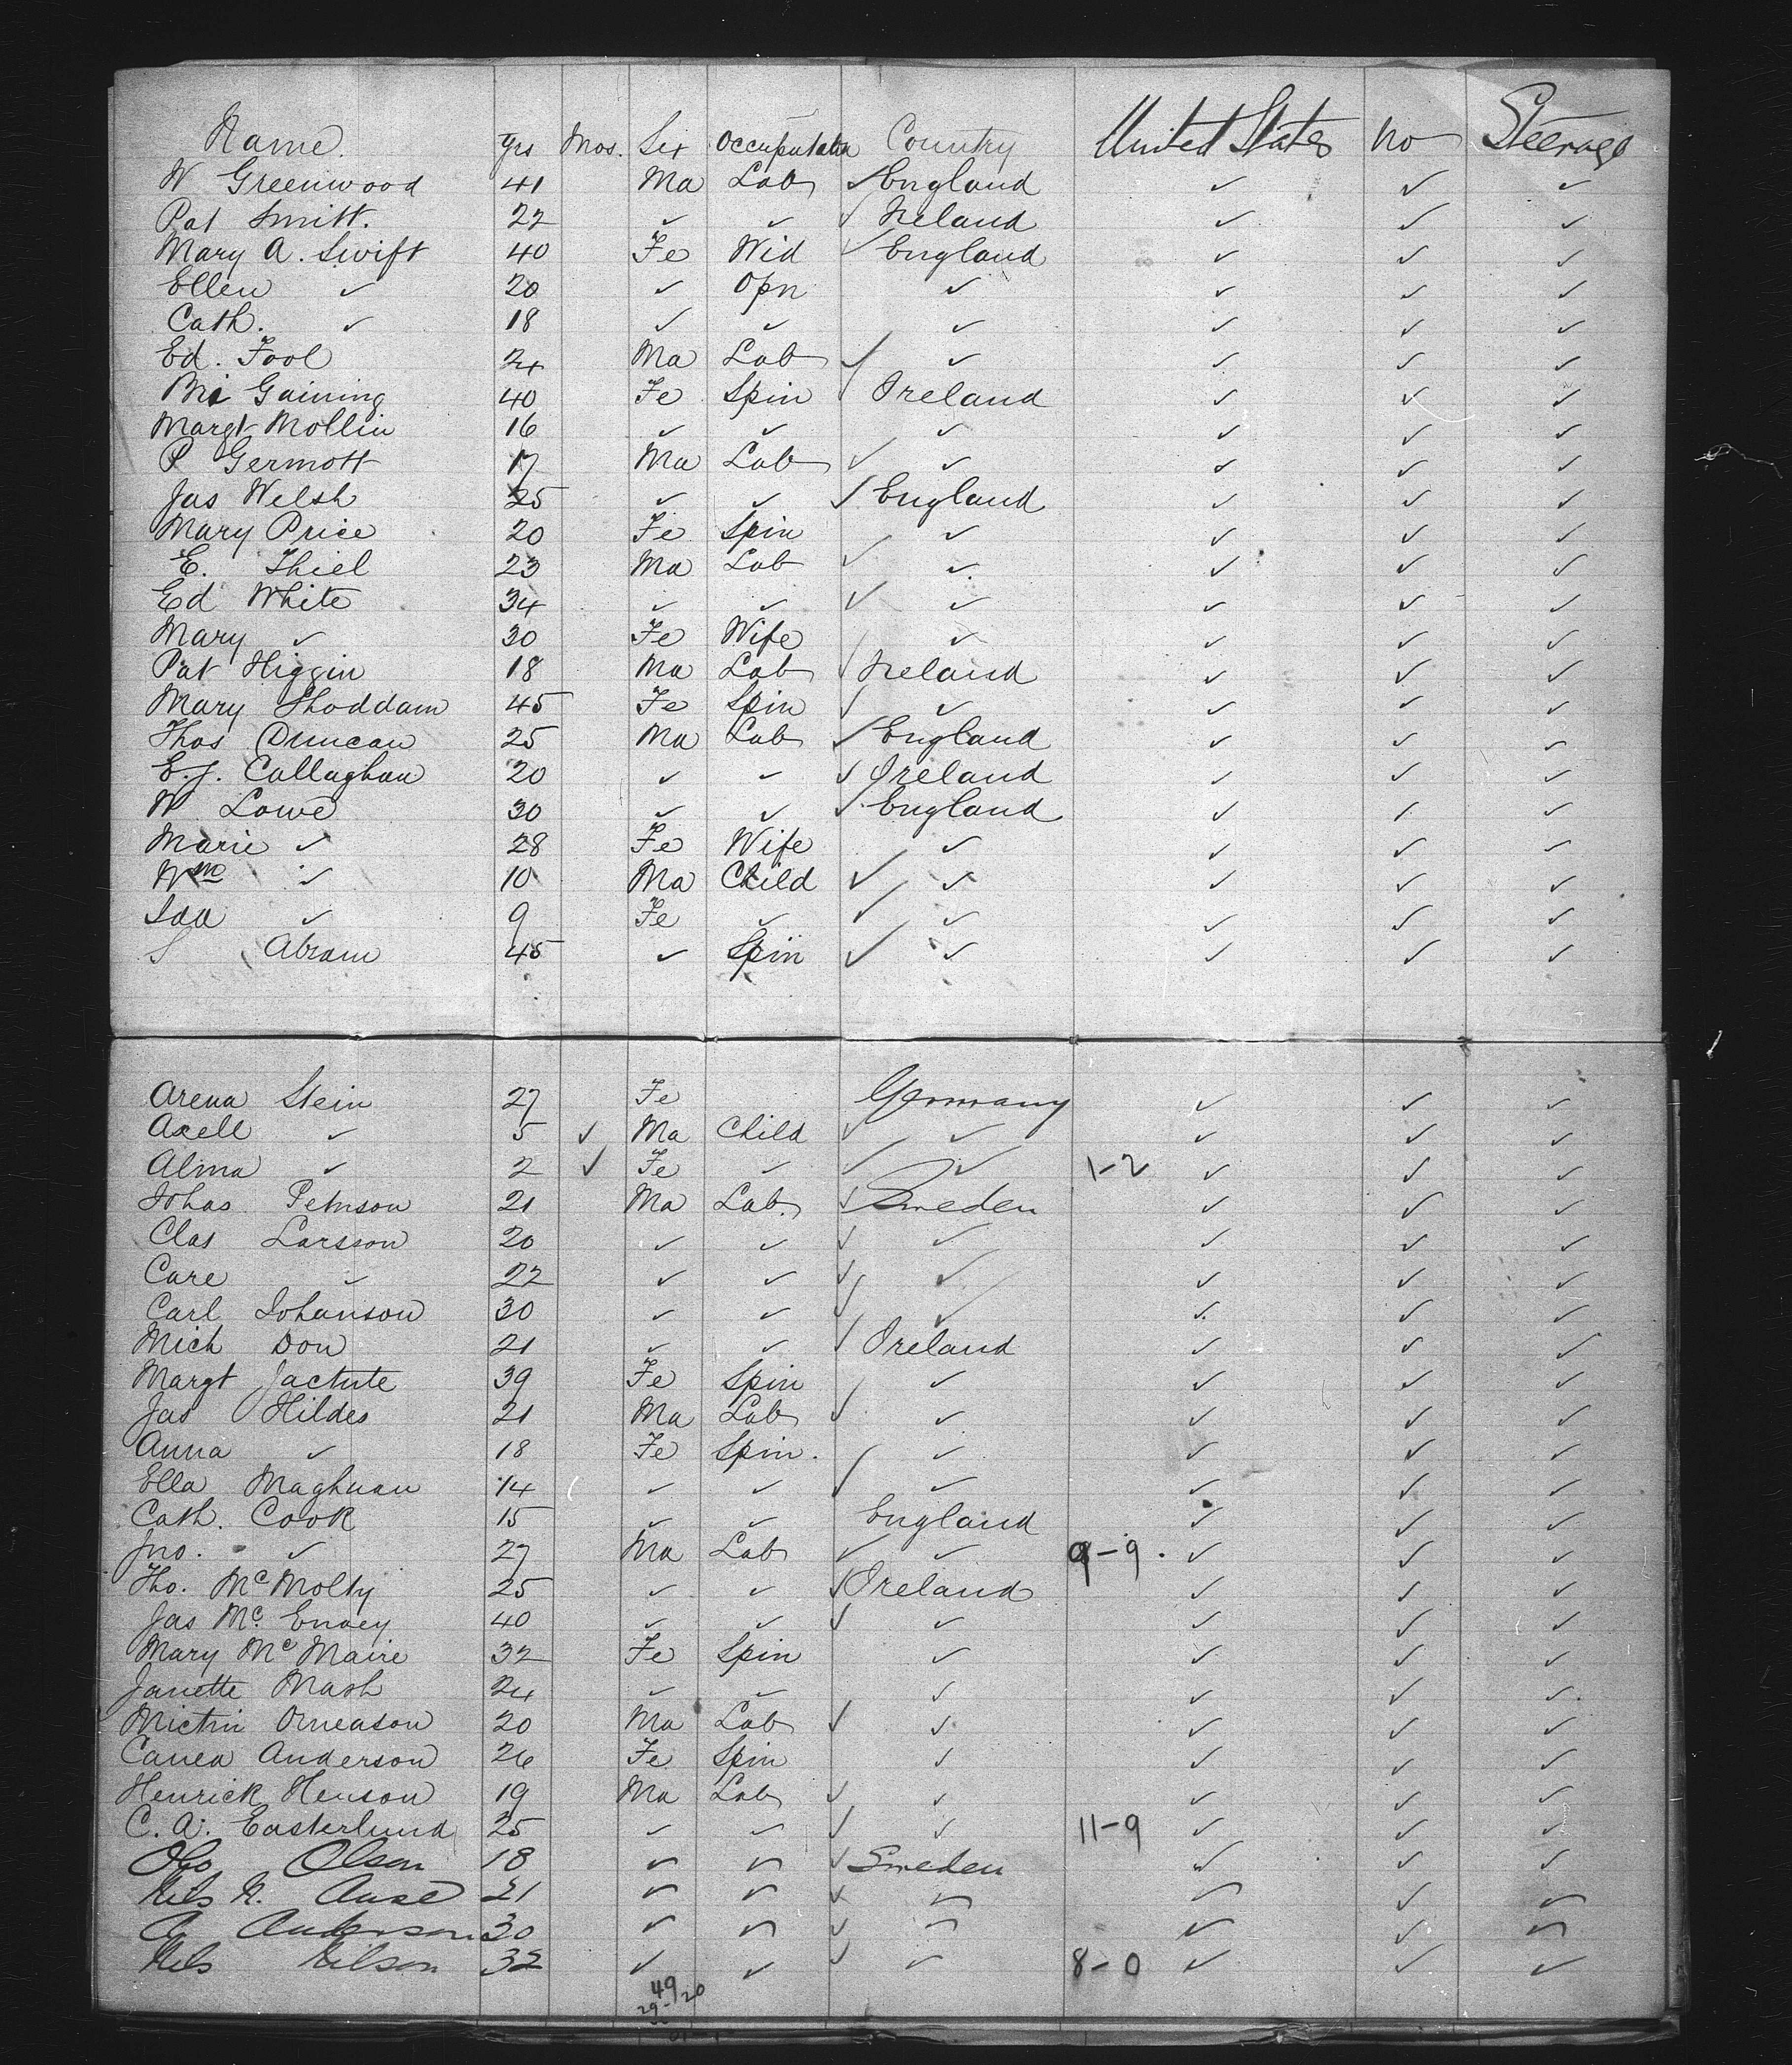 Name. Yrs Mos. Sex Occupation Country United States No Steerage
W Greenwood 41 Ma Lab ✓ England ✓ ✓ ✓
Pat Smitt. 22 ✓ ✓ ✓ Ireland ✓ ✓ ✓
Mary A. Swift 40 Fe Wid ✓ England ✓ ✓ ✓
Ellen ✓ 20 ✓ Opn ✓ ✓ ✓ ✓
Cath. ✓ 18 ✓ ✓ ✓ ✓ ✓ ✓
Ed. Fool 24 Ma Lab ✓ ✓ ✓ ✓ ✓
Gaining 40 Fe Spin ✓ Ireland ✓ ✓ ✓
Margt Mollin 16 ✓ ✓ ✓ ✓ ✓ ✓
P Germott 17 Ma Lab ✓ ✓ ✓ ✓ ✓
Jas Welsh 25 ✓ ✓ ✓ England ✓ ✓ ✓
Mary Price 20 Fe Spin ✓ ✓ ✓ ✓
E. Thiel 23 Ma Lab ✓ ✓ ✓ ✓ ✓
Ed White 34 ✓ ✓ ✓ ✓ ✓ ✓ ✓
Mary ✓ 30 Fe Wife ✓ ✓ ✓ ✓
Pat Higgin 18 Ma Lab ✓ Ireland ✓ ✓ ✓
Mary Shoddam 45 Fe Spin ✓ ✓ ✓ ✓ ✓
Thos Duncan 25 Ma Lab ✓ England ✓ ✓ ✓
E.J. Callaghan 20 ✓ ✓ ✓ Ireland ✓ ✓ ✓
W Lowe 30 ✓ ✓ ✓ England ✓ ✓ ✓
Marie ✓ 28 Fe Wife ✓ ✓ ✓ ✓
Wm ✓ 10 Ma Child ✓ ✓ ✓ ✓ ✓
Ida ✓ 9 Fe ✓ ✓ ✓ ✓ ✓ ✓
S Abram 45 ✓ Spin ✓ ✓ ✓ ✓ ✓
Arena Stein 27 Fe Germany ✓ ✓ ✓
Axell ✓ 5 ✓ Ma Child ✓ ✓ ✓ ✓ ✓
Alma ✓ 2 ✓ Fe ✓ ✓ ✓ 1-2 ✓ ✓ ✓
Johas Petnson 21 Ma Lab. ✓ Sweden ✓ ✓ ✓
Clas Larsson 20 ✓ ✓ ✓ ✓ ✓ ✓ ✓
Care ✓ 22 ✓ ✓ ✓ ✓ ✓ ✓ ✓
Carl Johanson 30 ✓ ✓ ✓ ✓ ✓ ✓ ✓
Mich Don 21 ✓ ✓ ✓ Ireland ✓ ✓ ✓
Margt Jactute 39 Fe Spin ✓ ✓ ✓ ✓
Jas Hildes 21 Ma Lab ✓ ✓ ✓ ✓ ✓
Anna ✓ 18 Fe Spin. ✓ ✓ ✓ ✓ ✓
Ella Maghuan 14 ✓ ✓ ✓ ✓ ✓ ✓ ✓
Cath. Cook 15 ✓ ✓ England ✓ ✓ ✓
Jno. ✓ 27 Ma Lab ✓ ✓ 9-9 ✓ ✓ ✓
Tho. McMolty 25 ✓ ✓ ✓ Ireland ✓ ✓ ✓
Jas Mc. Envey 40 ✓ ✓ ✓ ✓ ✓ ✓ ✓
Mary McMaire 32 Fe Spin ✓ ✓ ✓ ✓
Janette Mash 24 ✓ ✓ ✓ ✓ ✓ ✓
Mictin Orneason 20 Ma Lab ✓ ✓ ✓ ✓ ✓
Canea Anderson 26 Fe Spin ✓ ✓ ✓ ✓
Henrick Henson 19 Ma Lab ✓ ✓ ✓ ✓ ✓
C. A. Easterlund 25 ✓ ✓ ✓ ✓ 11-9 ✓ ✓ ✓
Olson 18 ✓ ✓ ✓ Sweden ✓ ✓ ✓
Nils N. 21 ✓ ✓ ✓ ✓ ✓ ✓ ✓
A Anderson 30 ✓ ✓ ✓ ✓ ✓ ✓ ✓
Nils Nilson 32 ✓ ✓ ✓ ✓ 8-0 ✓ ✓ ✓
49
29-20